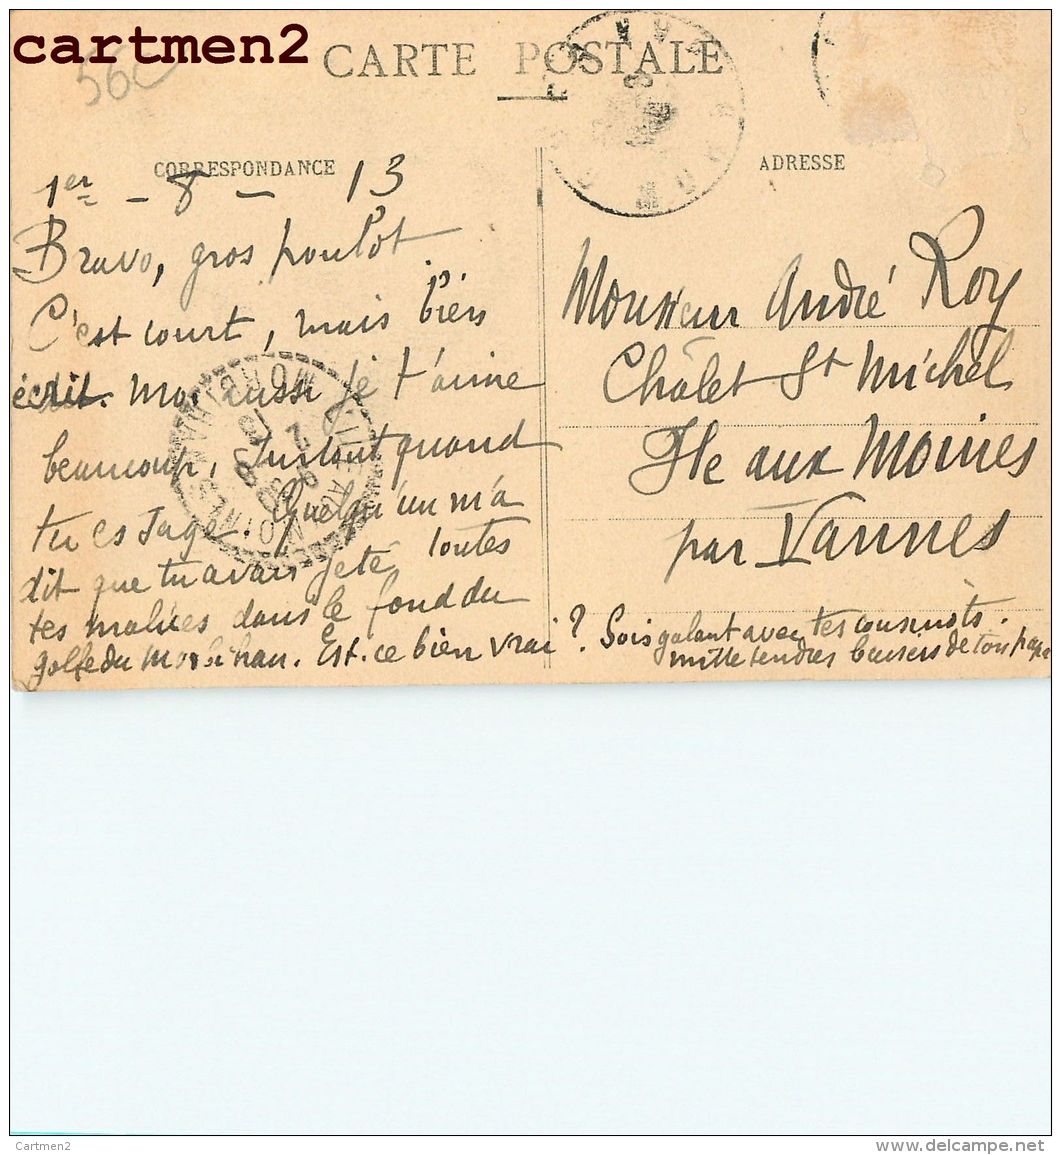 cartmen2
56C
CARTE POSTALE
CORRESPONDANCE
1er - 8 - 13
Bravo, gros poulot.
C'est court, mais bien
écrit. Moi aussi je t'aime
beaucoup, surtout quand
tu es sage. Quelqu'un m'a
dit que tu avais jeté toutes
tes malices dans le fond du
golfe du Morbihan. Est-ce bien vrai ? Sois galant avec tes cousinots.
mille tendres baisers de ton papa
ADRESSE
Monsieur André Roy
Châlet St Michel
Ile aux Moines
par Vannes
MORBIHAN
Cartmen2
www.delcampe.net